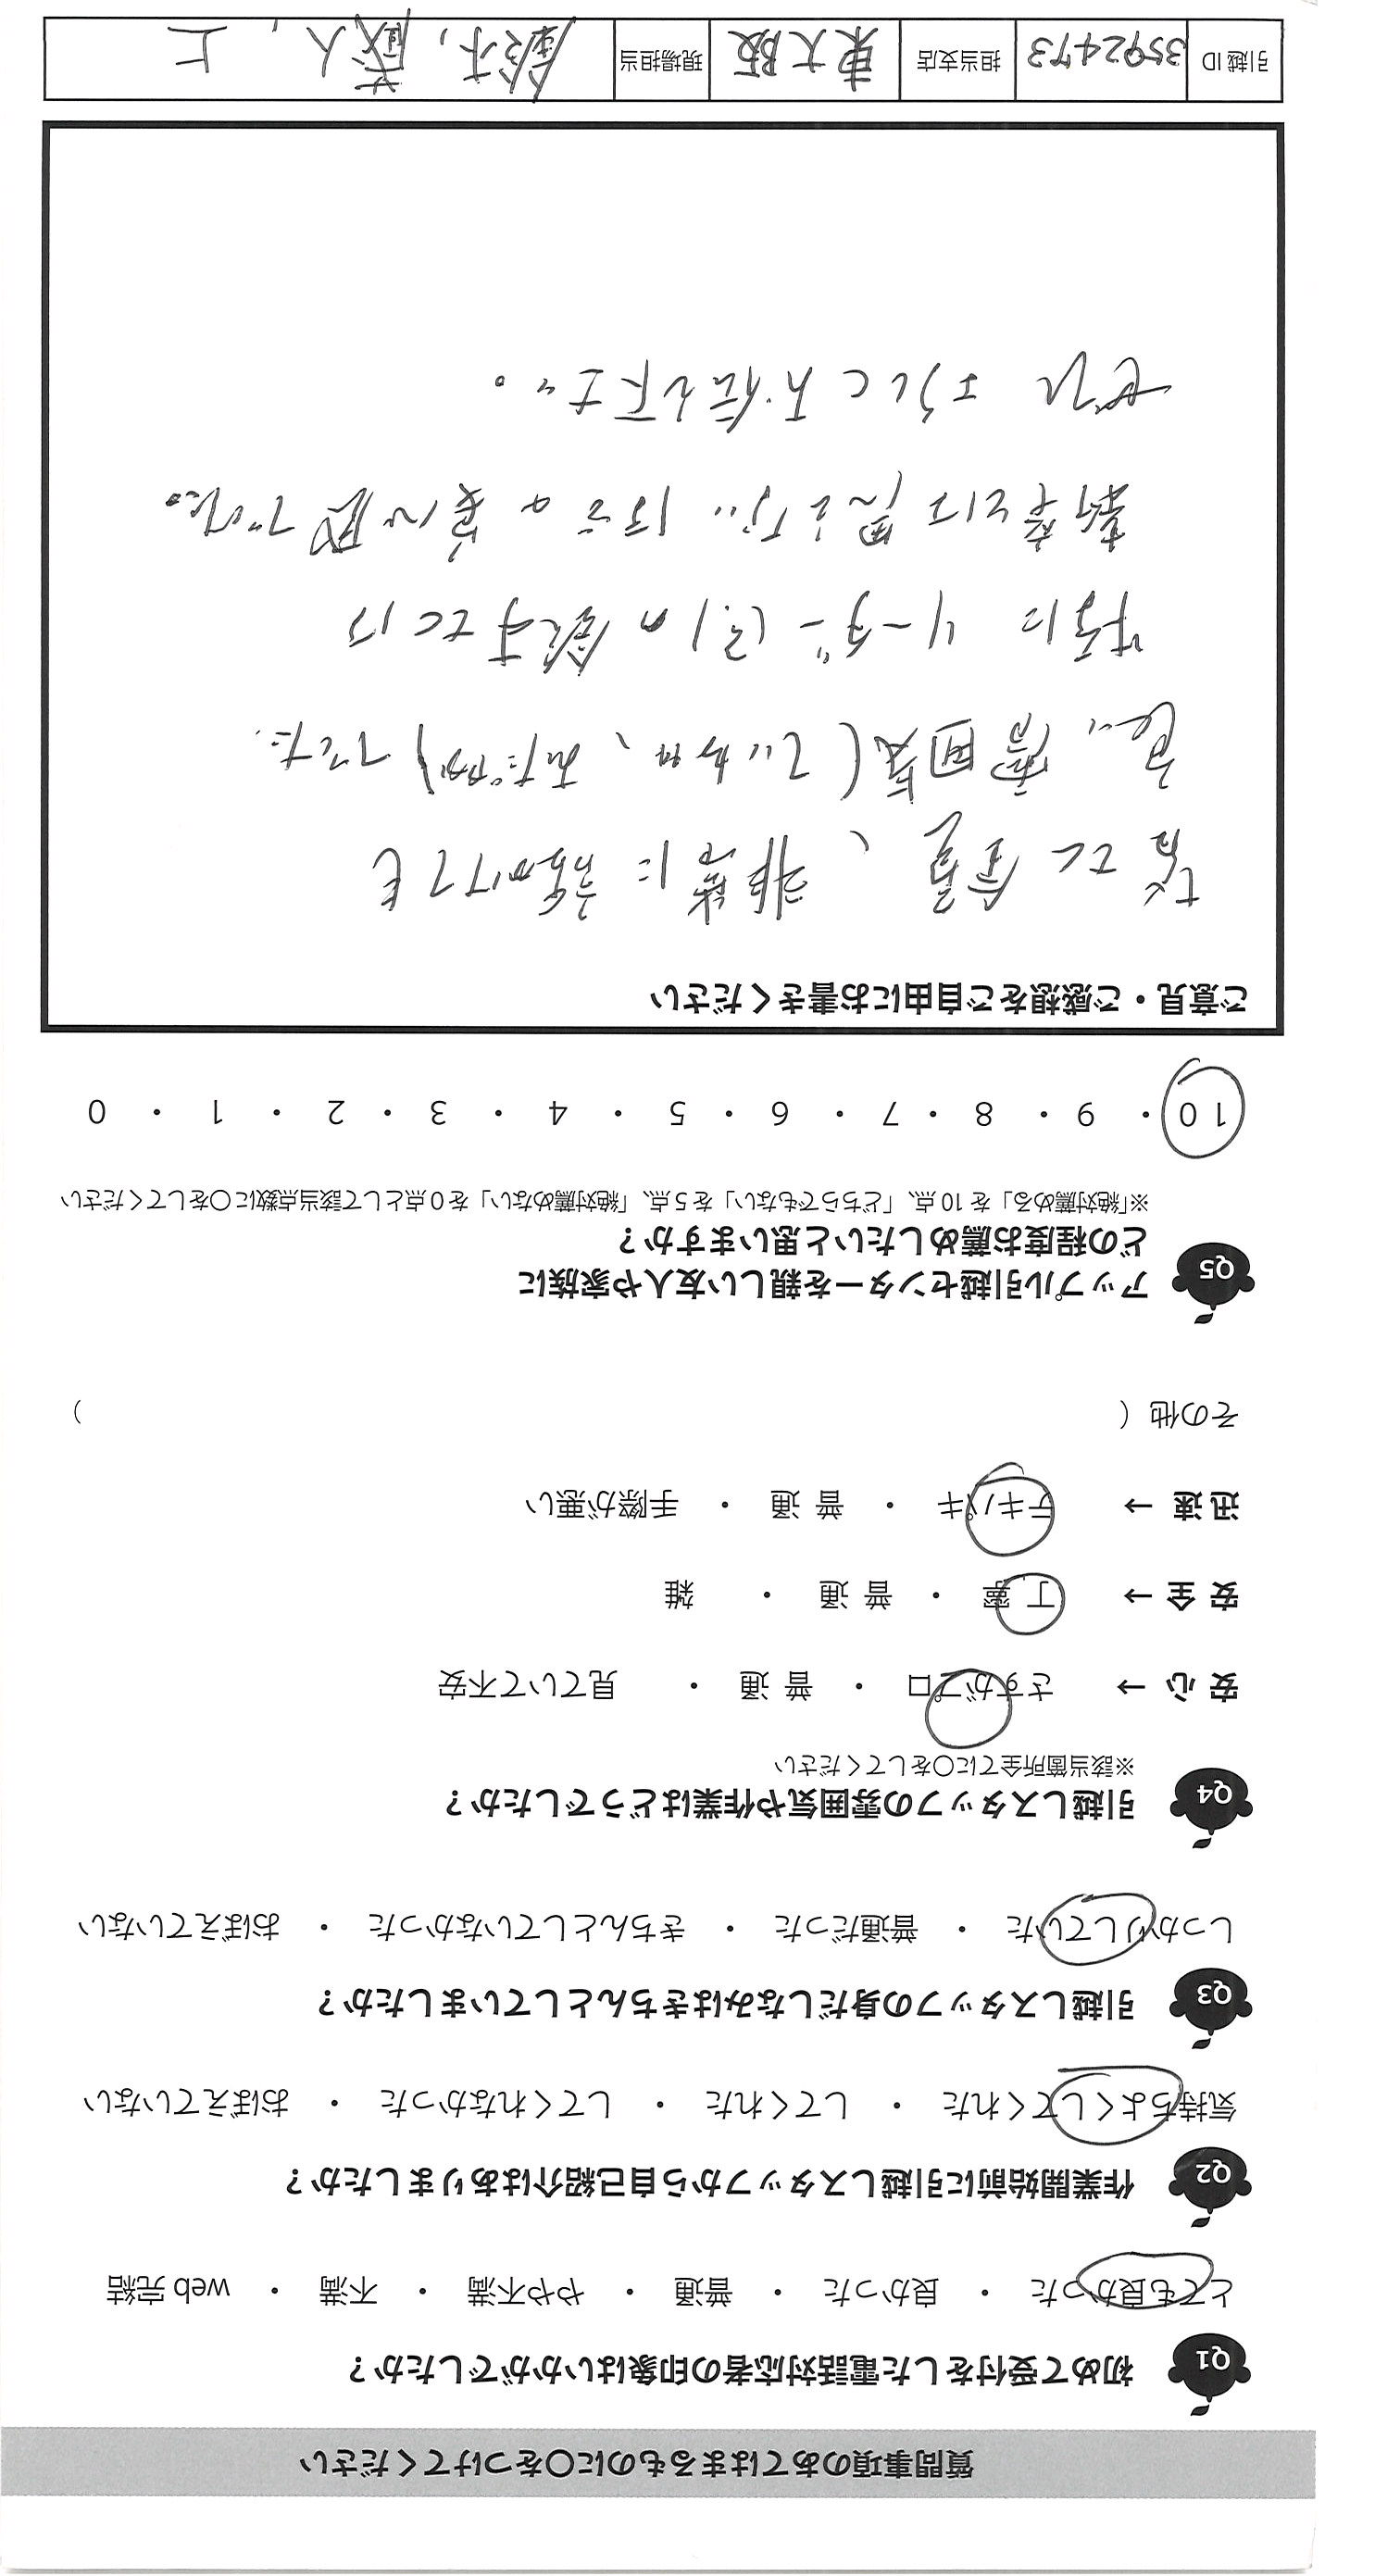 質問事項のあてはまるものに〇をつけてください
Q1 初めて受付をした電話対応者の印象はいかがでしたか？
とても良かった ・ 良かった ・ 普通 ・ やや不満 ・ 不満 ・ web 完結
Q2 作業開始前に引越しスタッフから自己紹介はありましたか？
気持ちよくしてくれた ・ してくれた ・ してくれなかった ・ おぼえていない
Q3 引越しスタッフの身だしなみはきちんとしていましたか？
しっかりしていた ・ 普通だった ・ きちんとしていなかった ・ おぼえていない
Q4 引越しスタッフの雰囲気や作業はどうでしたか？
※該当箇所全てに〇をしてください
安心 → さすがプロ ・ 普通 ・ 見ていて不安
安全 → 丁寧 ・ 普通 ・ 雑
迅速 → テキパキ ・ 普通 ・ 手際が悪い
その他（ ）
Q5 アップル引越センターを親しい友人や家族に
どの程度お薦めしたいと思いますか？
※「絶対薦める」を 10 点、「どちらでもない」を 5 点、「絶対薦めない」を 0 点として該当点数に〇をしてください
10 ・ 9 ・ 8 ・ 7 ・ 6 ・ 5 ・ 4 ・ 3 ・ 2 ・ 1 ・ 0
ご意見・ご感想をご自由にお書きください
全員、非常に話かけても
良い雰囲気(ていねい、おだやか)でした。
特に リーダー(?)の鈴木さんは
新卒とは思えないほどの気配でした。
ぜひ よろしくお伝え下さい。
引越 ID 3592473 担当支店 東大阪 現場担当 鈴木, 蔵人, 上